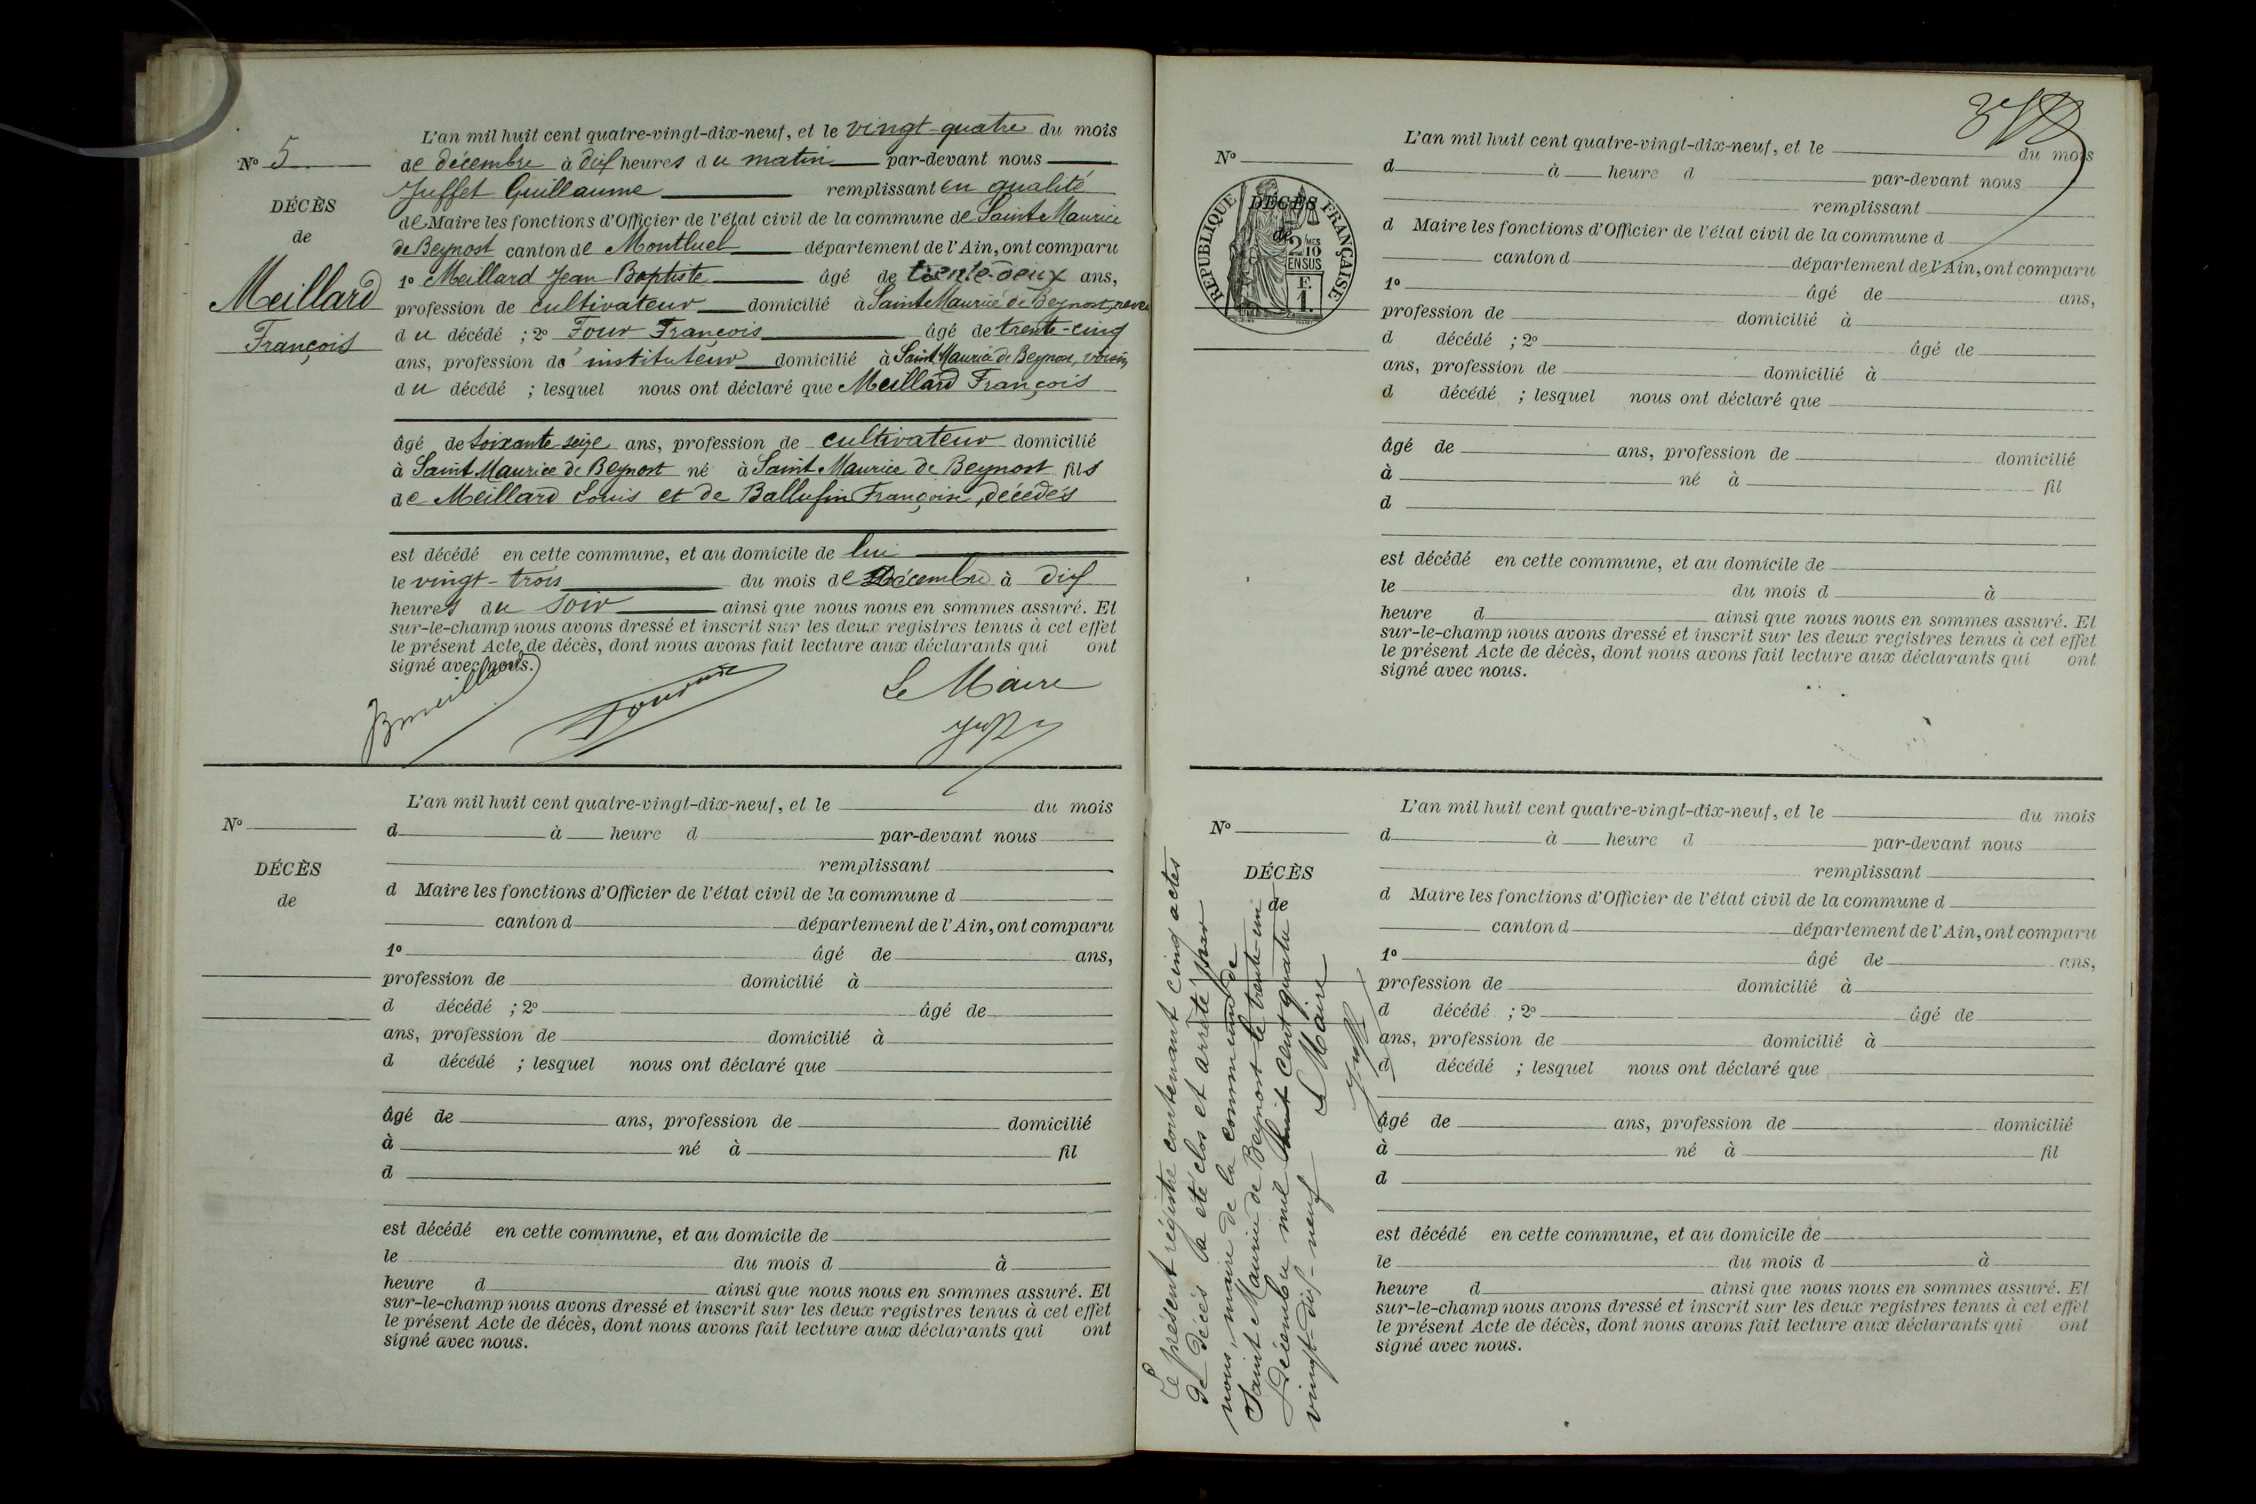 L'an mil huit cent quatre-vingt-dix-neuf, et le vingt-quatre du mois
N° 5
de décembre à dix heures du matin par-devant nous
Juffet Guillaume remplissant en qualité
DÉCÈS
de Maire les fonctions d'Officier de l'état civil de la commune de Saint Maurice
de
de Beynost canton de Montluel département de l'Ain, ont comparu
1° Meillard Jean Baptiste âgé de trente-deux ans,
Meillard
profession de cultivateur domicilié à Saint Maurice de Beynost, neveu
François
du décédé ; 2° Four François âgé de trente-cinq
ans, profession de instituteur domicilié à Saint Maurice de Beynost, voisin,
du décédé ; lesquel nous ont déclaré que Meillard François
âgé de soixante seize ans, profession de cultivateur domicilié
à Saint Maurice de Beynost né à Saint Maurice de Beynost fils
de Meillard Louis et de Ballufin Françoise, décédés
est décédé en cette commune, et au domicile de lui
le vingt-trois du mois de Décembre à dix
heures du soir ainsi que nous nous en sommes assuré. Et
sur-le-champ nous avons dressé et inscrit sur les deux registres tenus à cet effet
le présent Acte de décès, dont nous avons fait lecture aux déclarants qui ont
signé avec nous.
Le Maire
L'an mil huit cent quatre-vingt-dix-neuf, et le du mois
N°
d à heure d par-devant nous
remplissant
DÉCÈS
d Maire les fonctions d'Officier de l'état civil de la commune d
de
canton d département de l'Ain, ont comparu
1° âgé de ans,
profession de domicilié à
d décédé ; 2° âgé de
ans, profession de domicilié à
d décédé ; lesquel nous ont déclaré que
âgé de ans, profession de domicilié
à né à fil
d
est décédé en cette commune, et au domicile de
le du mois d à
heure d ainsi que nous nous en sommes assuré. Et
sur-le-champ nous avons dressé et inscrit sur les deux registres tenus à cet effet
le présent Acte de décès, dont nous avons fait lecture aux déclarants qui ont
signé avec nous.
L'an mil huit cent quatre-vingt-dix-neuf, et le du mois
N°
d à heure d par-devant nous
remplissant
RÉPUBLIQUE FRANÇAISE
DÉCÈS
de
2 MES
10
EN SUS
F.
1.
d Maire les fonctions d'Officier de l'état civil de la commune d
canton d département de l'Ain, ont comparu
1° âgé de ans,
profession de domicilié à
d décédé ; 2° âgé de
ans, profession de domicilié à
d décédé ; lesquel nous ont déclaré que
âgé de ans, profession de domicilié
à né à fil
d
est décédé en cette commune, et au domicile de
le du mois d à
heure d ainsi que nous nous en sommes assuré. Et
sur-le-champ nous avons dressé et inscrit sur les deux registres tenus à cet effet
le présent Acte de décès, dont nous avons fait lecture aux déclarants qui ont
signé avec nous.
L'an mil huit cent quatre-vingt-dix-neuf, et le du mois
N°
d à heure d par-devant nous
remplissant
DÉCÈS
d Maire les fonctions d'Officier de l'état civil de la commune d
de
canton d département de l'Ain, ont comparu
1° âgé de ans,
profession de domicilié à
d décédé ; 2° âgé de
ans, profession de domicilié à
d décédé ; lesquel nous ont déclaré que
âgé de ans, profession de domicilié
à né à fil
d
est décédé en cette commune, et au domicile de
le du mois d à
heure d ainsi que nous nous en sommes assuré. Et
sur-le-champ nous avons dressé et inscrit sur les deux registres tenus à cet effet
le présent Acte de décès, dont nous avons fait lecture aux déclarants qui ont
signé avec nous.
Le présent régistre contenant cinq actes
de décès a été clos et arrêté par
nous, maire de la commune de
Saint Maurice de Beynost le trente-un
Décembre mil huit cent quatre
vingt-dix-neuf
Le Maire